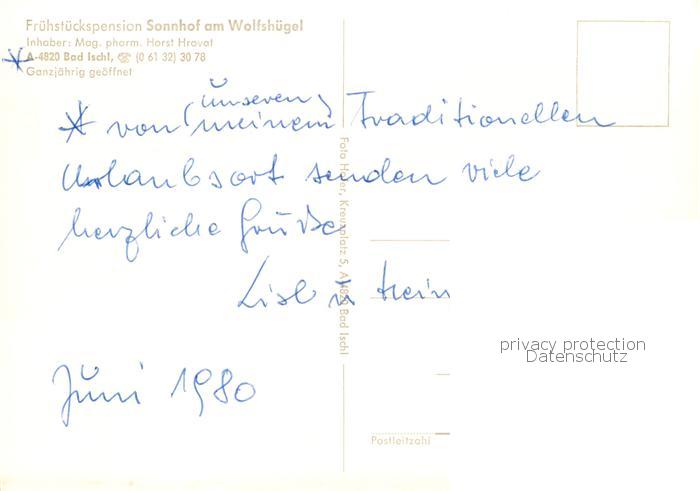 Frühstückspension Sonnhof am Wolfshügel
Inhaber: Mag. pharm. Horst Hrovat
* A-4820 Bad Ischl, ☎ (0 61 32) 30 78
Ganzjährig geöffnet
(unseren)
* von meinem Traditionellen
Urlaubsort senden viele
herzliche Grüße
Lisl u. Hein
Juni 1980
Foto Hofer, Kreuzplatz 5, A-4820 Bad Ischl
privacy protection
Datenschutz
Postleitzahl